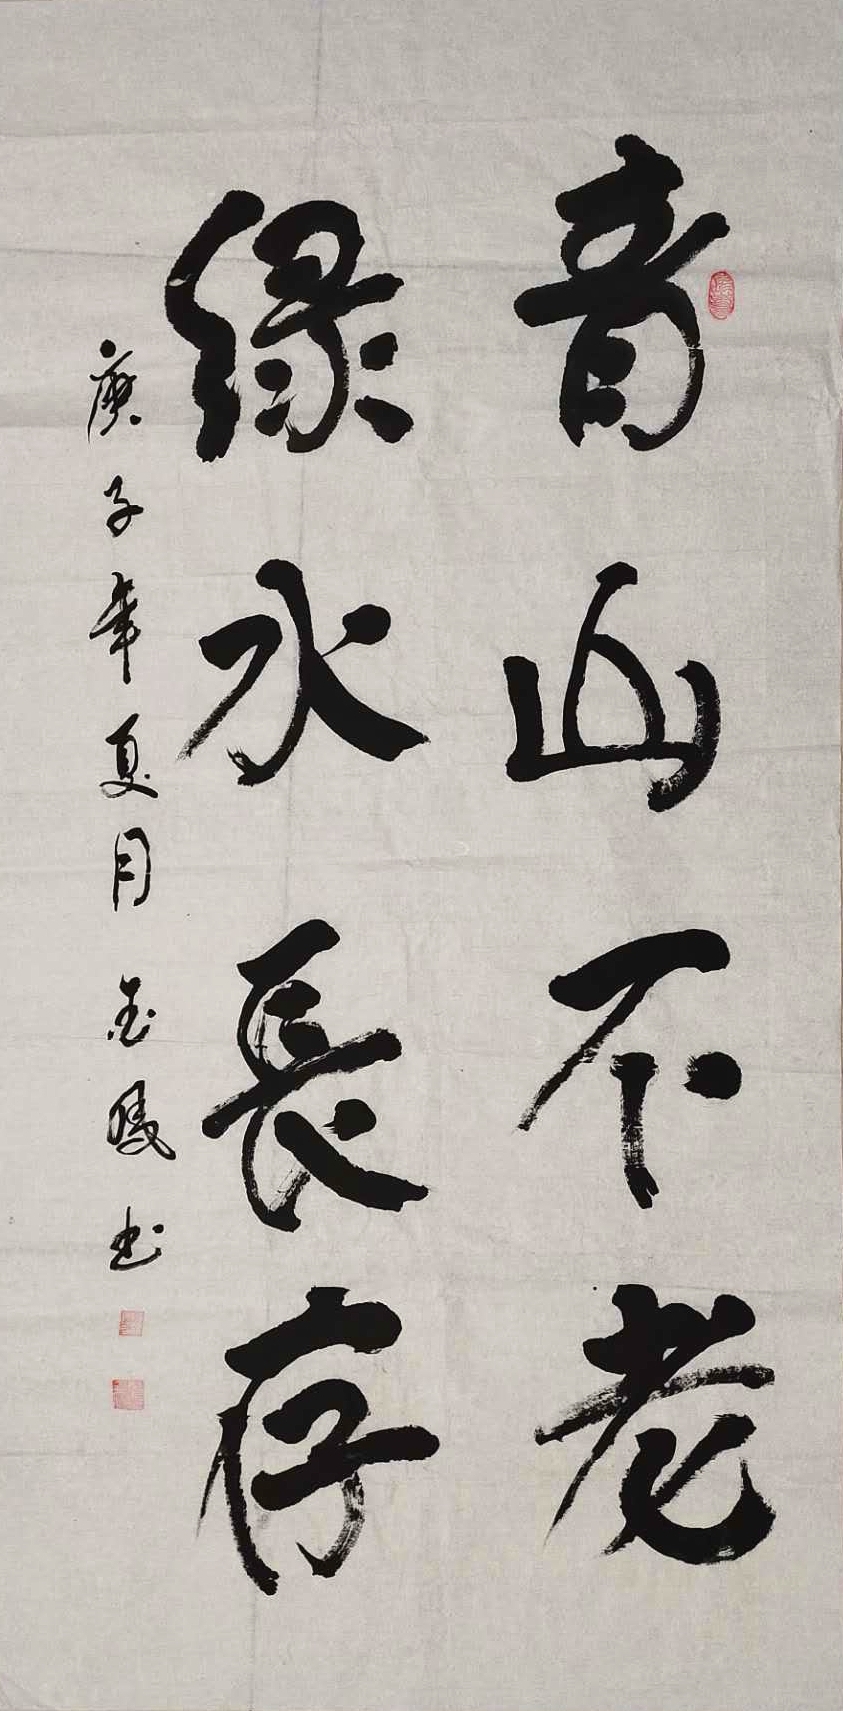 青山不老
绿水長存
庚子年夏月 书